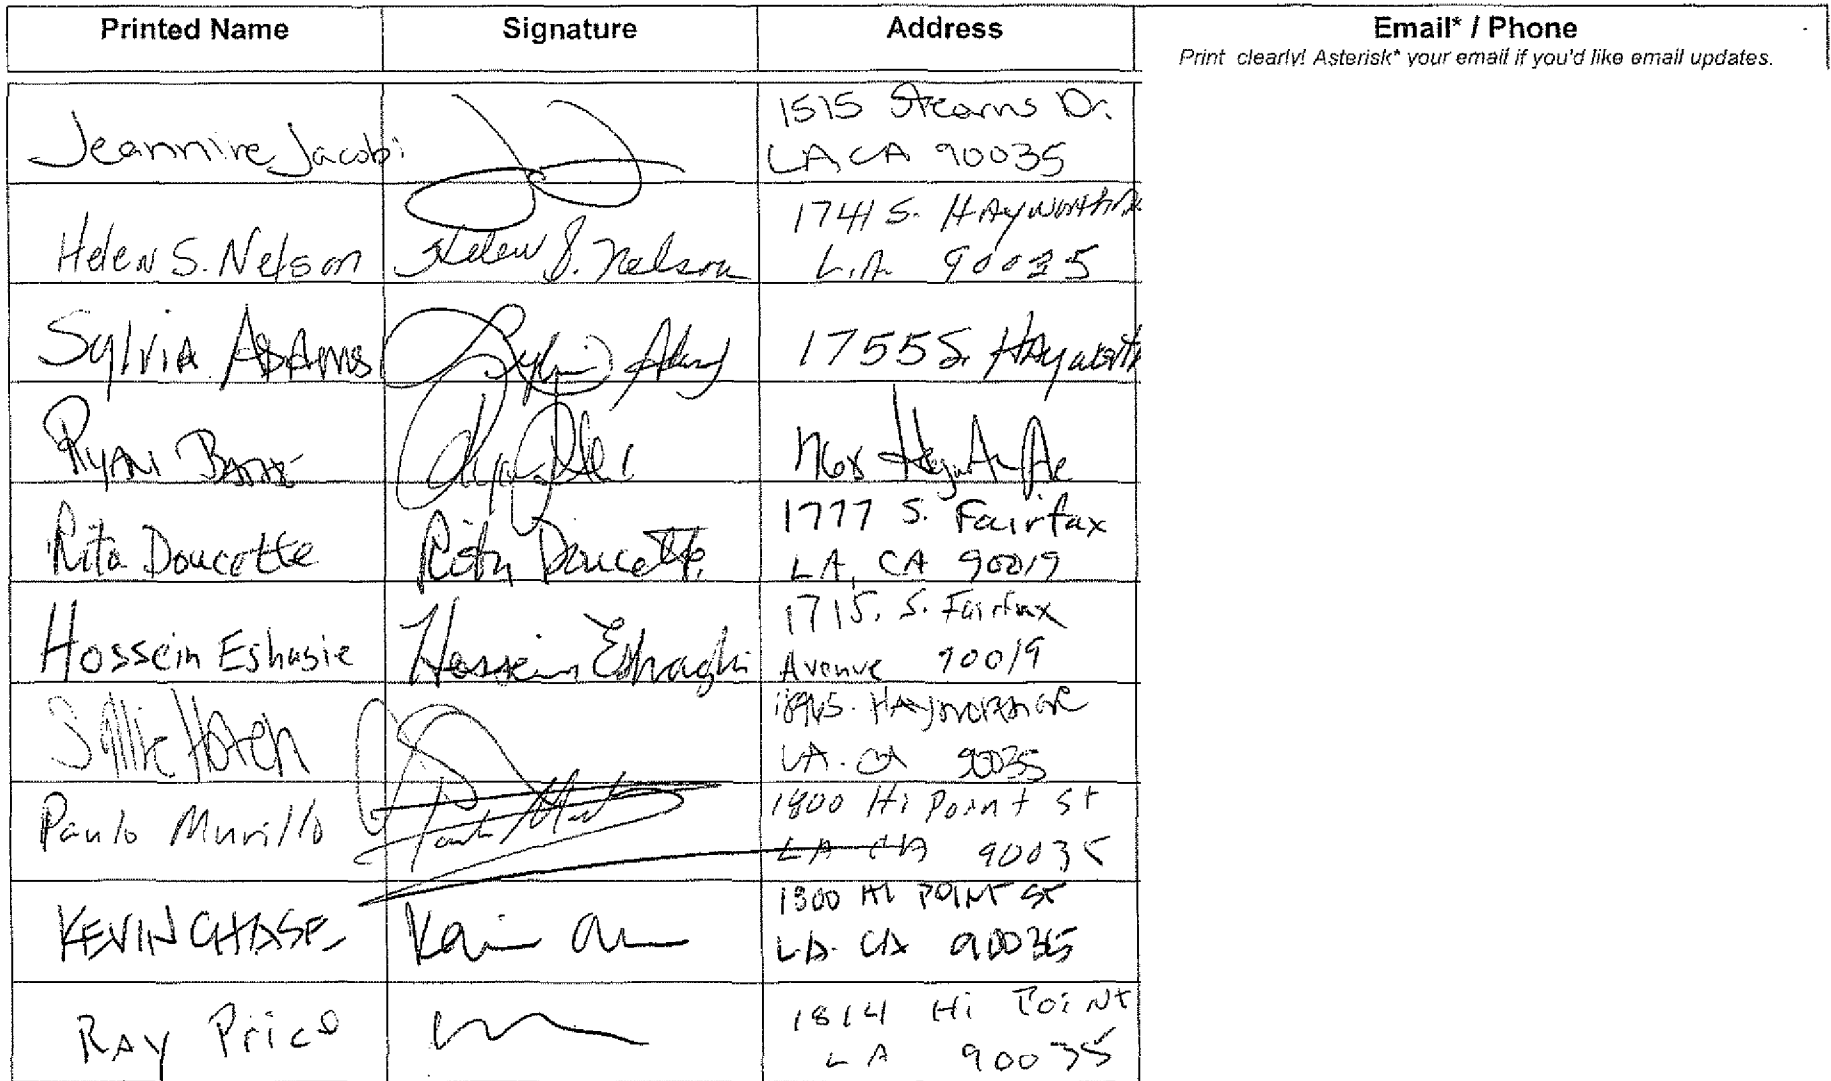 Printed Name Signature Address Email* / Phone
Print clearly! Asterisk* your email if you'd like email updates.
Jeannine Jacobi 1515 Stearns Dr.
LA CA 90035
Helen S. Nelson Helen S. Nelson 1741 S. Hayworth
L.A. 90035
Sylvia Adams Sylvia Adams 1755 S. Hayworth
Ryan
Rita Doucette Rita Doucette 1777 S. Fairfax
LA, CA 90019
Hossein Eshagie Hossein Eshaghi 1715. S. Fairfax
Avenue 90019
LA. CA 90035
Paulo Murillo 1800 Hi Point St
LA CA 90035
KEVIN CHASE Kevin 1800 HI POINT ST
LA. CA 90035
RAY Price 1814 Hi Point
LA 90035